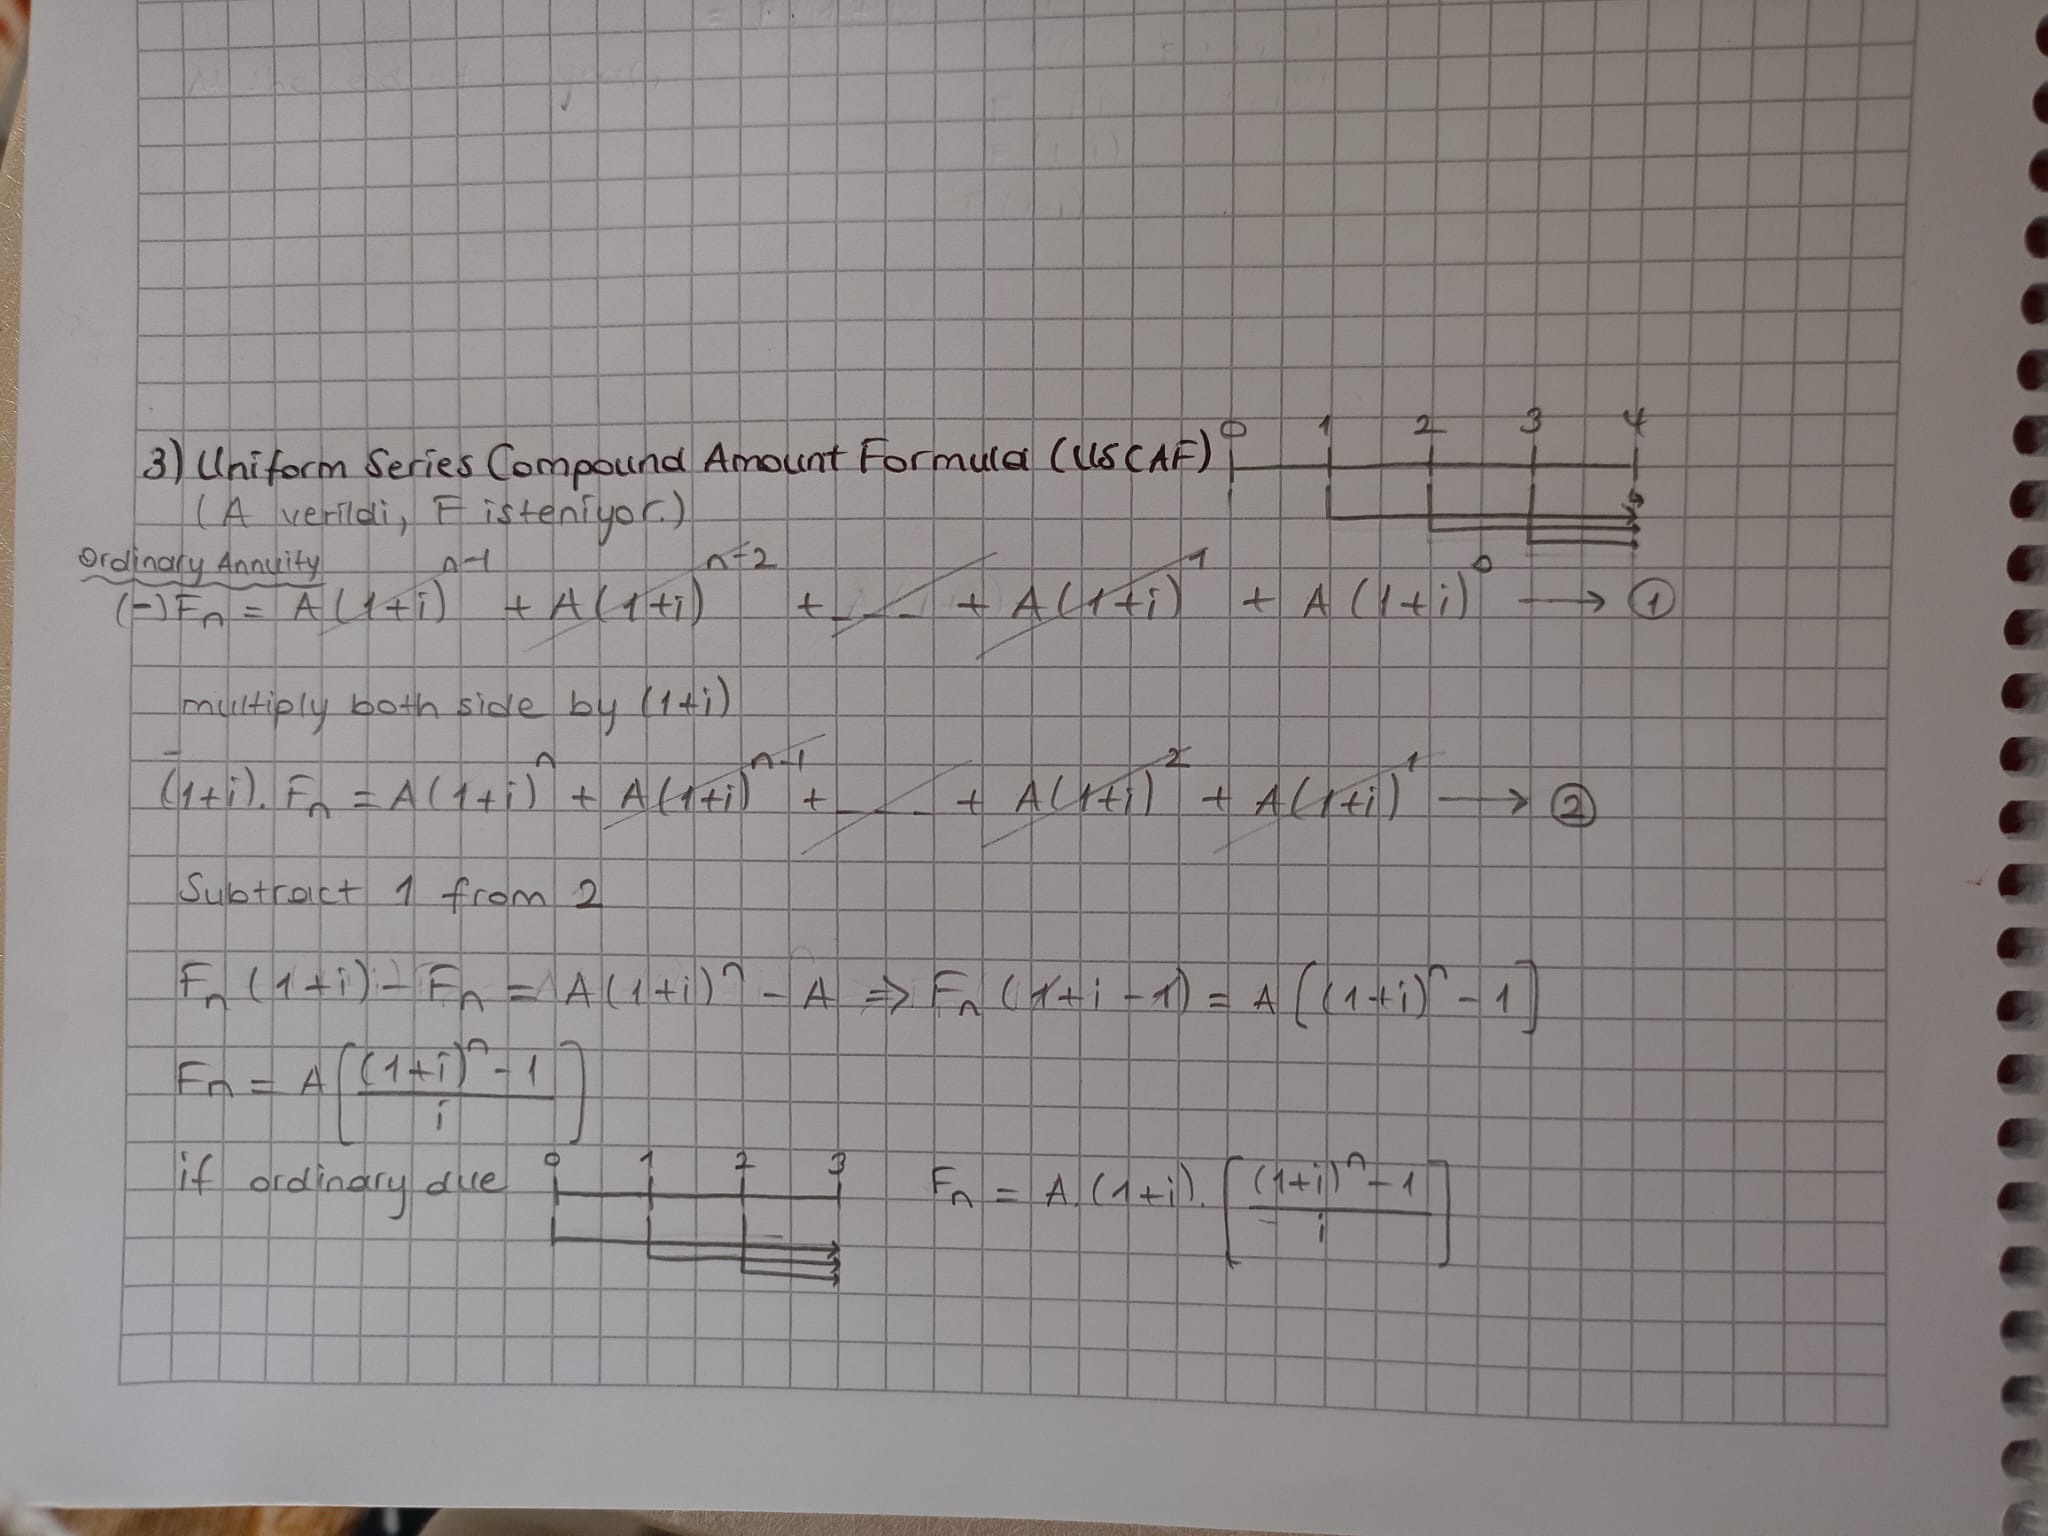 3) Uniform Series Compound Amount Formula (USCAF) 0 1 2 3 4
(A verildi, F isteniyor.)
Ordinary Annuity
(-) Fn = A(1+i)^n-1 + A(1+i)^n-2 + ___ + A(1+i)^1 + A(1+i)^0 → ①
multiply both side by (1+i)
(1+i). Fn = A(1+i)^n + A(1+i)^n-1 + ___ + A(1+i)^2 + A(1+i)^1 → ②
Subtract 1 from 2
Fn (1+i) - Fn = A(1+i)^n - A ⇒ Fn (1+i-1) = A[(1+i)^n - 1]
Fn = A[((1+i)^n - 1)/i]
if ordinary due 0 1 2 3 Fn = A.(1+i).[((1+i)^n - 1)/i]